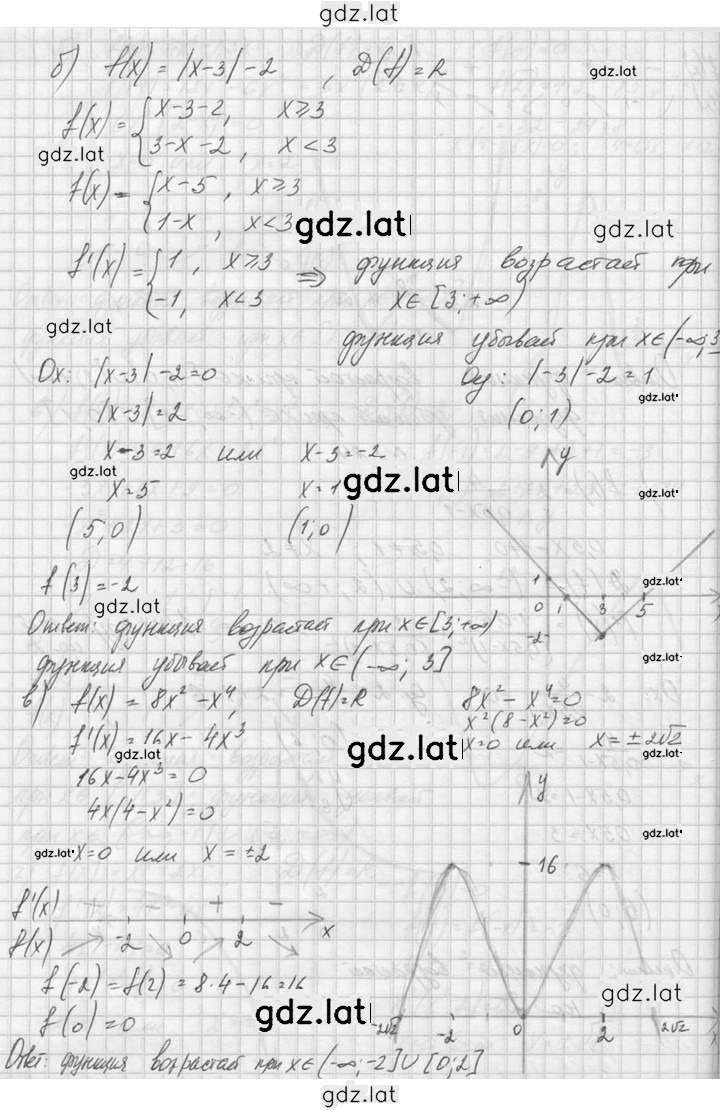 gdz.lat
б) f(x) = |x-3| -2 , D(f) = R
gdz.lat
f(x) = { x-3-2, x⩾3
3-x-2, x<3
gdz.lat
f(x) = { x-5, x⩾3
1-x, x<3
gdz.lat
gdz.lat
f'(x) = { 1, x⩾3
-1, x<3
⇒ функция возрастает при
x∈[3;+∞)
gdz.lat
функция убывает при x∈(-∞;3
Ox: |x-3| -2=0
Oy: |-3| -2=1
|x-3|=2
(0; 1)
gdz.lat
x-3=2 или x-3=-2
gdz.lat
x=5 x=1
gdz.lat
gdz.lat
(5,0) (1;0)
y
1
0 1 3 5
-2
gdz.lat
f(3)=-2
gdz.lat
gdz.lat
Ответ: функция возрастает при x∈[3;+∞)
функция убывает при x∈(-∞; 3]
gdz.lat
в) f(x) = 8x² -x⁴, D(f)=R
8x² - x⁴=0
x²(8-x²)=0
x=0 или x=±2√2
f'(x)=16x- 4x³
gdz.lat
gdz.lat
gdz.lat
16x-4x³ = 0
4x(4-x²)=0
gdz.lat
gdz.lat
x=0 или x = ±2
y
16
f'(x) + - + -
-2 0 2 x
f(x)
f(-2)=f(2)=8·4-16=16
gdz.lat
gdz.lat
f(0)=0
-2√2 -2 0 2 2√2
Ответ: функция возрастает при x∈(-∞;-2]∪[0;2]
gdz.lat